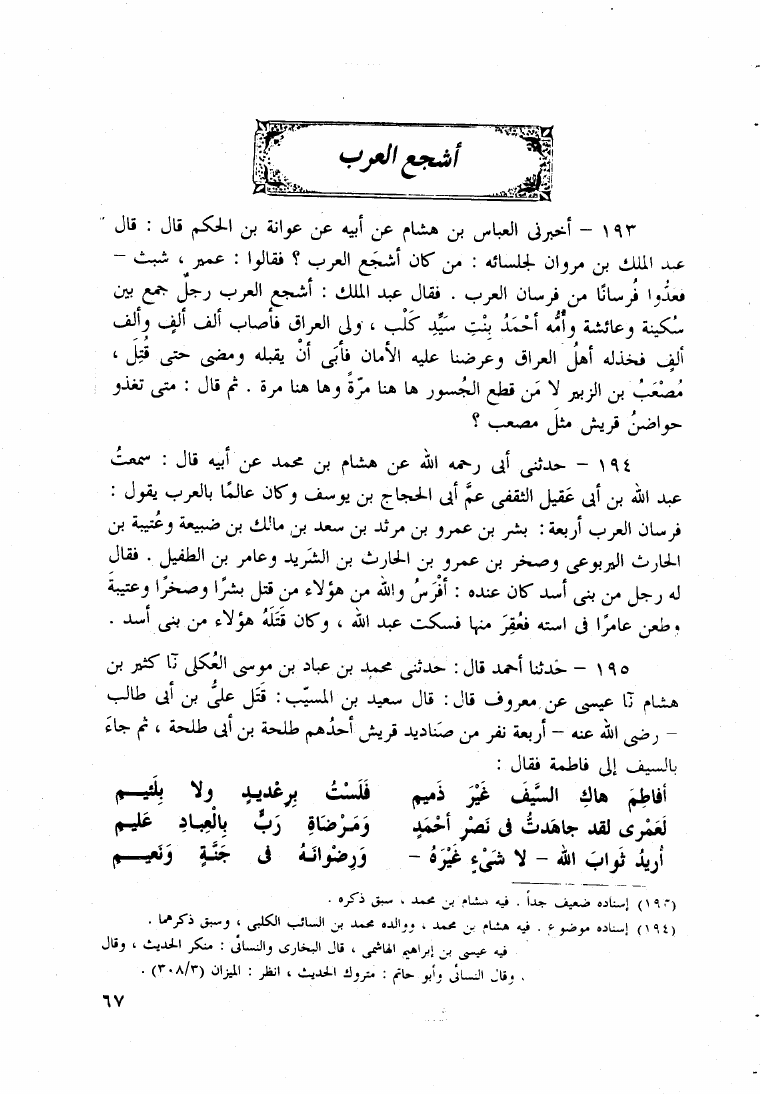 أشجع العرب
١٩٣ – أخبرنى العباس بن هشام عن أبيه عن عوانة بن الحكم قال : قال
عبد الملك بن مروان لجلسائه : من كان أشجَع العرب ؟ فقالوا : عمير ، شبث –
فعدُّوا فُرسانًا من فرسان العرب . فقال عبد الملك : أشجع العرب رجلٌ جمع بين
سُكينة وعائشة وأُمُّه أحْمَدُ بِنْتِ سَيِّدِ كَلْب ، ولى العراق فأصاب ألف ألفٍ وألف
ألفٍ فخذله أهلُ العراق وعرضنا عليه الأمان فأبَى أنْ يقبله ومضى حتى قُتِلَ ،
مُصْعَبُ بن الزبير لا مَن قطع الجُسور ها هنا مرّةً وها هنا مرة . ثم قال : متى تغذو
حواضنُ قريش مثلَ مصعب ؟
١٩٤ – حدثنى أبى رحمه الله عن هشام بن محمد عن أبيه قال : سمعتُ
عبد الله بن أبى عَقيل الثقفى عمَّ أبى الحجاج بن يوسف وكان عالمًا بالعرب يقول :
فرسان العرب أربعة : بشر بن عمرو بن مرثد بن سعد بن مالك بن ضبيعة وعُتيبة بن
الحارث اليربوعى وصخر بن عمرو بن الحارث بن الشريد وعامر بن الطفيل . فقال
له رجل من بنى أسد كان عنده : أفْرَسُ والله من هؤلاء من قتل بشرًا وصخرًا وعتيبةَ
وطعن عامرًا فى استه فعُقِرَ منها فسكت عبد الله ، وكان قَتَلَهُ هؤلاء من بنى أسد .
١٩٥ – حَدثنا أحمد قال : حدثنى محمد بن عباد بن موسى العُكلى نَا كثير بن
هشام نَا عيسى عن معروف قال : قال سعيد بن المسيّب : قَتَل علىُّ بن أبى طالب
– رضى الله عنه – أربعة نفر من صناديد قريش أحدُهم طلحة بن أبى طلحة ، ثم جاءَ
بالسيف إلى فاطمة فقال :
أفاطِمَ هاكِ السَّيفَ غَيْرَ ذَميم فَلَسْتُ بِرِعْديدٍ ولا بِلَئيم
لَعَمْرى لقد جاهَدتُّ فى نَصْرِ أحْمَدٍ وَمَرْضَاةِ رَبٍّ بالْعِبادِ عَليم
أريدُ ثَوابَ الله – لا شَىْءٍ غَيْرَهُ – وَرِضْوانَهُ فى جَنَّةٍ وَنَعيم
(١٩٣) إسناده ضعيف جداً . فيه هشام بن محمد ، سبق ذكره .
(١٩٤) إسناده موضوع . فيه هشام بن محمد ، ووالده محمد بن السائب الكلبى ، وسبق ذكرهما .
فيه عيسى بن إبراهيم الهاشمى ، قال البخارى والنسائى : منكر الحديث ، وقال
، وقال النسائى وأبو حاتم : متروك الحديث ، انظر : الميزان (٣٠٨/٣) .
٦٧